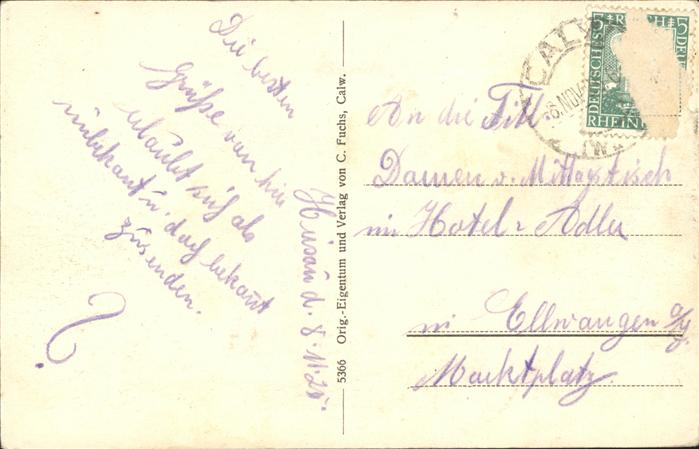 Die besten
Grüße von hier
erlaubt sich als
unbekant u. doch bekant
zusenden.
?
Hirsau d. 8.11.25
5366 Orig.-Eigentum und Verlag von C. Fuchs, Calw.
An die Titl.
Damen v. Mittagstisch
im Hotel = Adler
in Ellwangen a/J.
Marktplatz.
CALW
NOV
5 REICH 5
DEUTSCHES
RHEIN